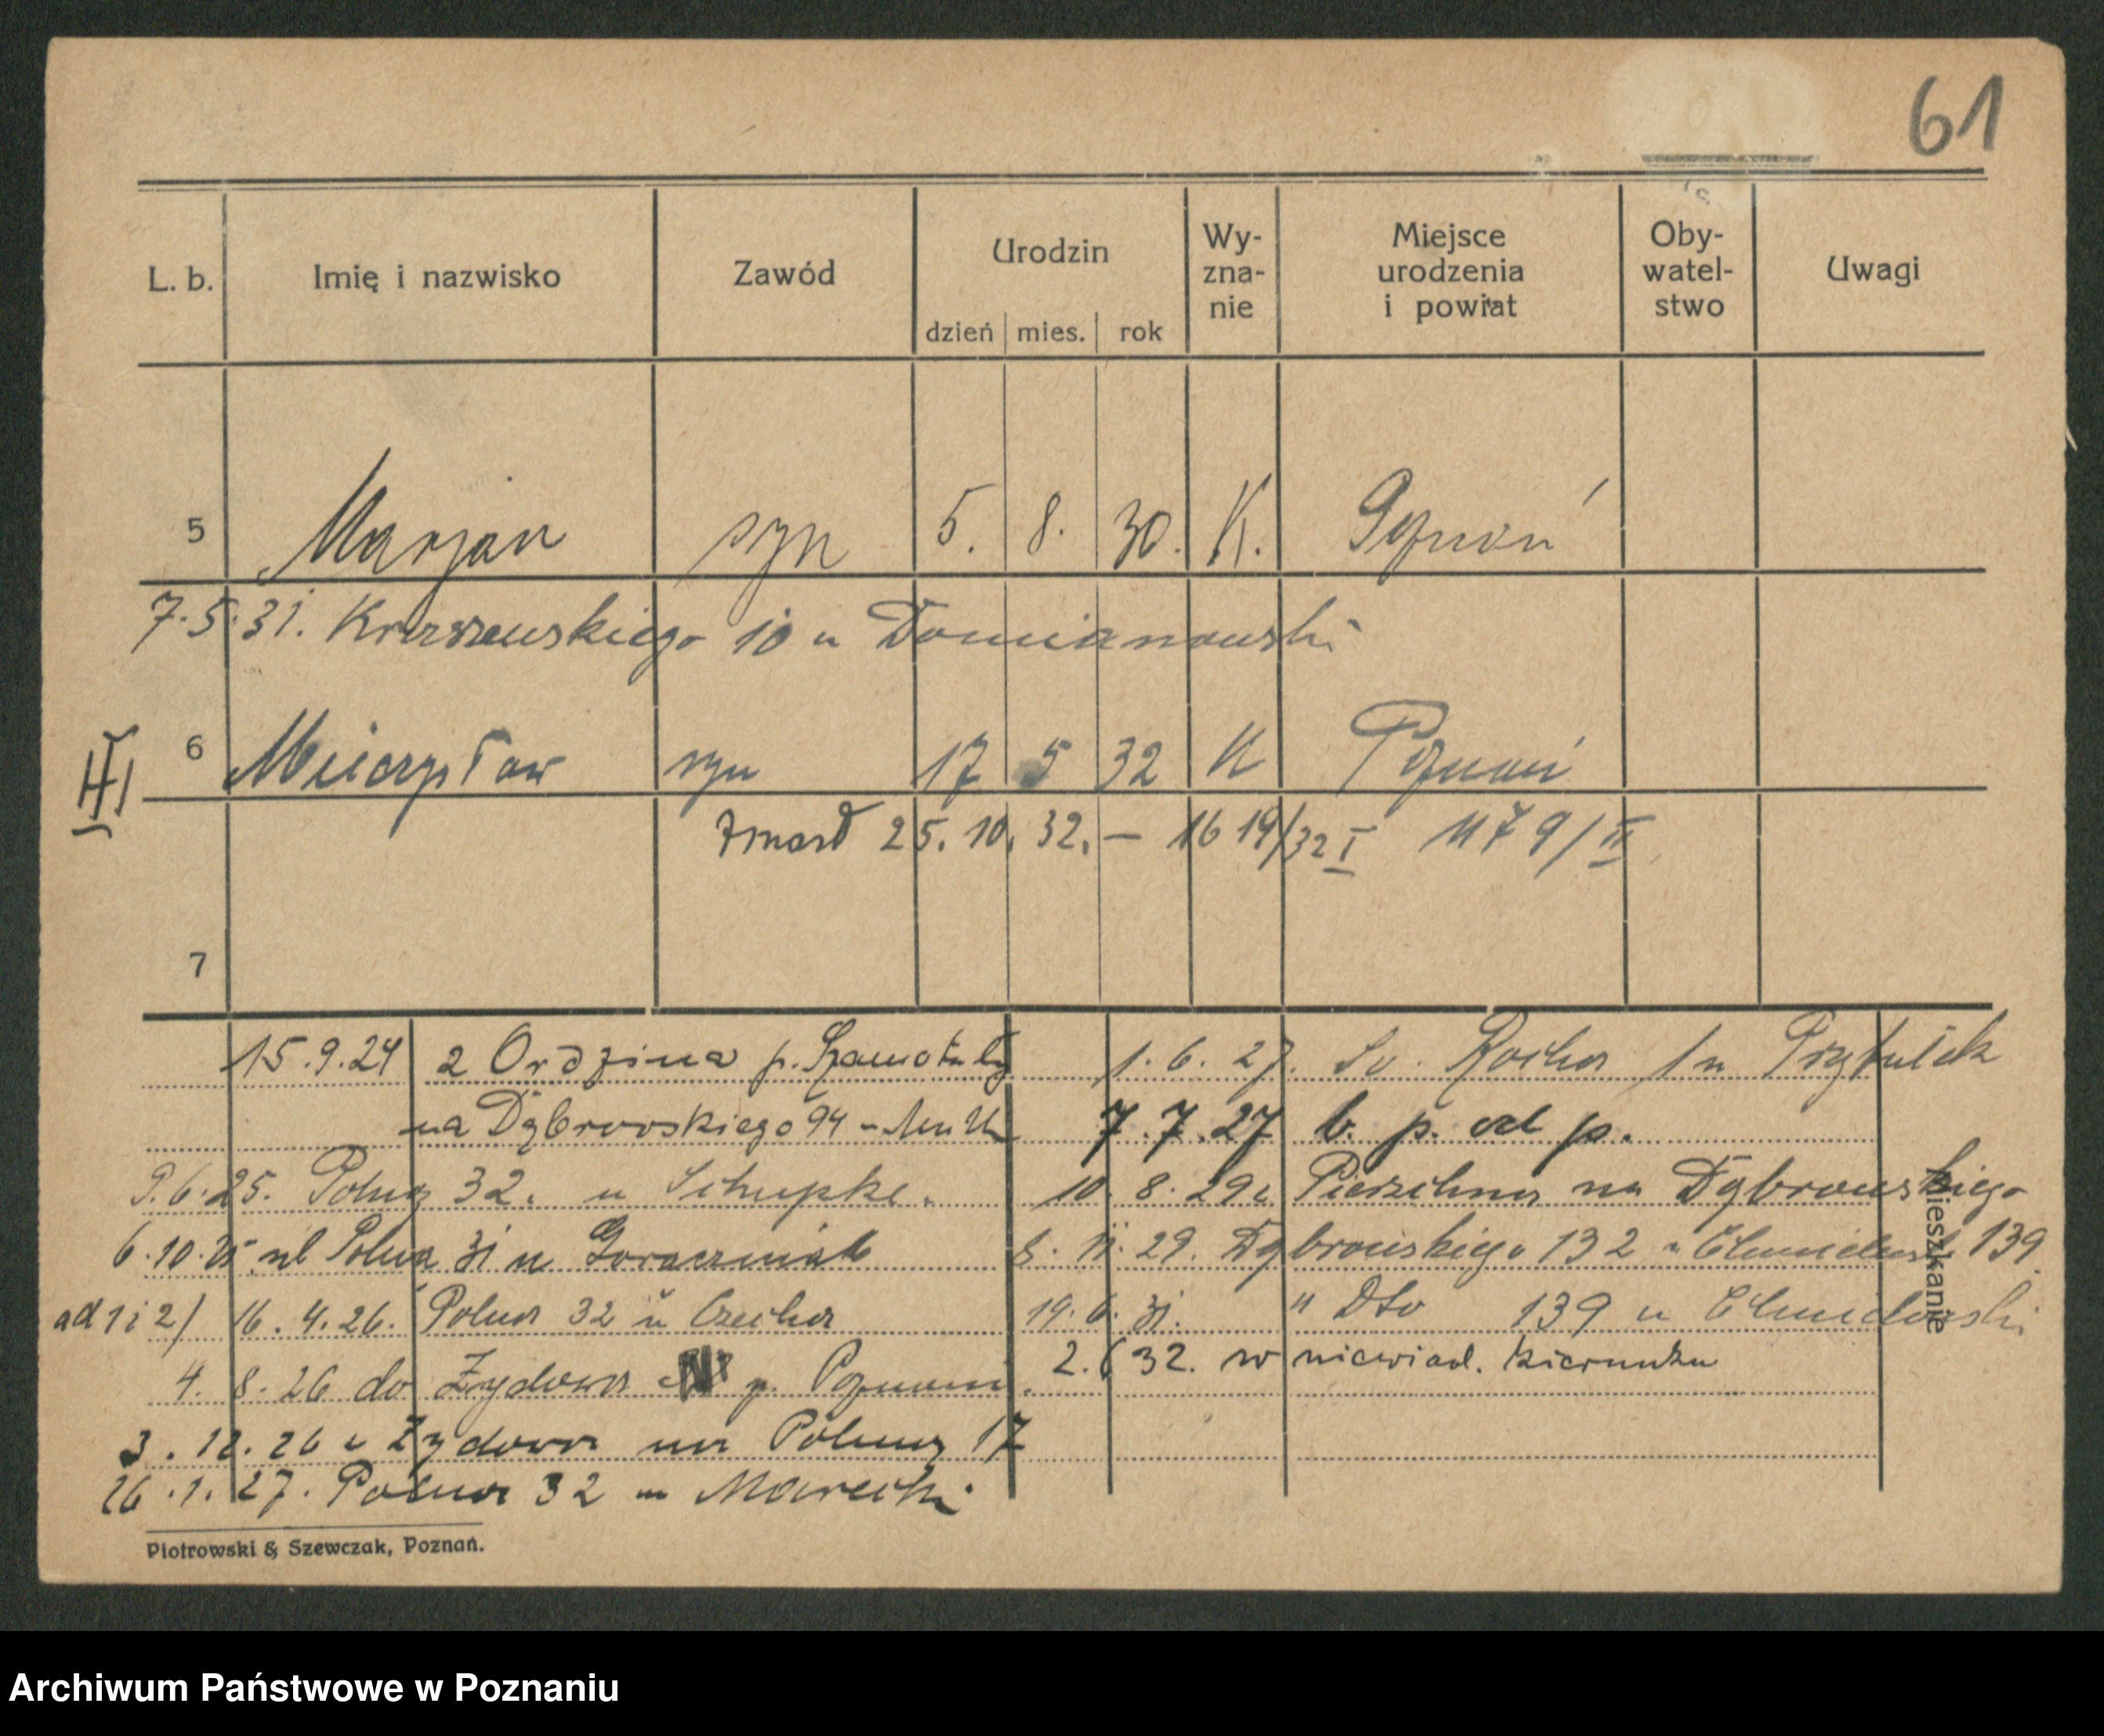 61
L. b. Imię i nazwisko Zawód Urodzin dzień mies. rok Wy-zna-nie Miejsce urodzenia i powiat Oby-watel-stwo Uwagi
5 Marjan syn 5. 8. 30. K. Poznań
7.5.31. Kraszewskiego 10 u Domianowski
III 6 Mieczysław syn 17 5 32 K Poznań
zmarł 25. 10. 32. — 1619/32 I 1179/II
7
15.9.24 z Ordzina p. Szamotuły
na Dąbrowskiego 94
9.6.25. Polna 32. u Schupke.
6.10.25 ul Polna 31 u Goraczniak
ad 1 i 2) 16.4.26. Polna 32 u Czecha
4. 8. 26 do Żydowa p. Poznań.
3. 12. 26 z Żydowa na Polną 17
26.1.27. Polna 32 u Marecki
1. 6. 27. Św. Rocha 1 u
7.7.27 b. p. od p.
10. 8. 29 z Pierzchna na Dąbrowskiego
8. 11. 29. Dąbrowskiego 132 u 139
19. 6. 31. " Dto 139 u Chmielewski
2.6 32. w niewiad. kierunku
Mieszkanie
Piotrowski & Szewczak, Poznań.
Archiwum Państwowe w Poznaniu